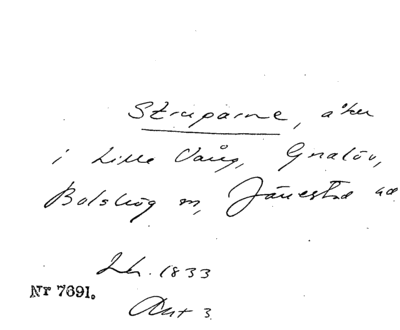 Struparne, åker
i Lille Vång, Gnalöv,
Bolshög m, Järrestad hd
Lh. 1833
Nr 7691.
Akt 3